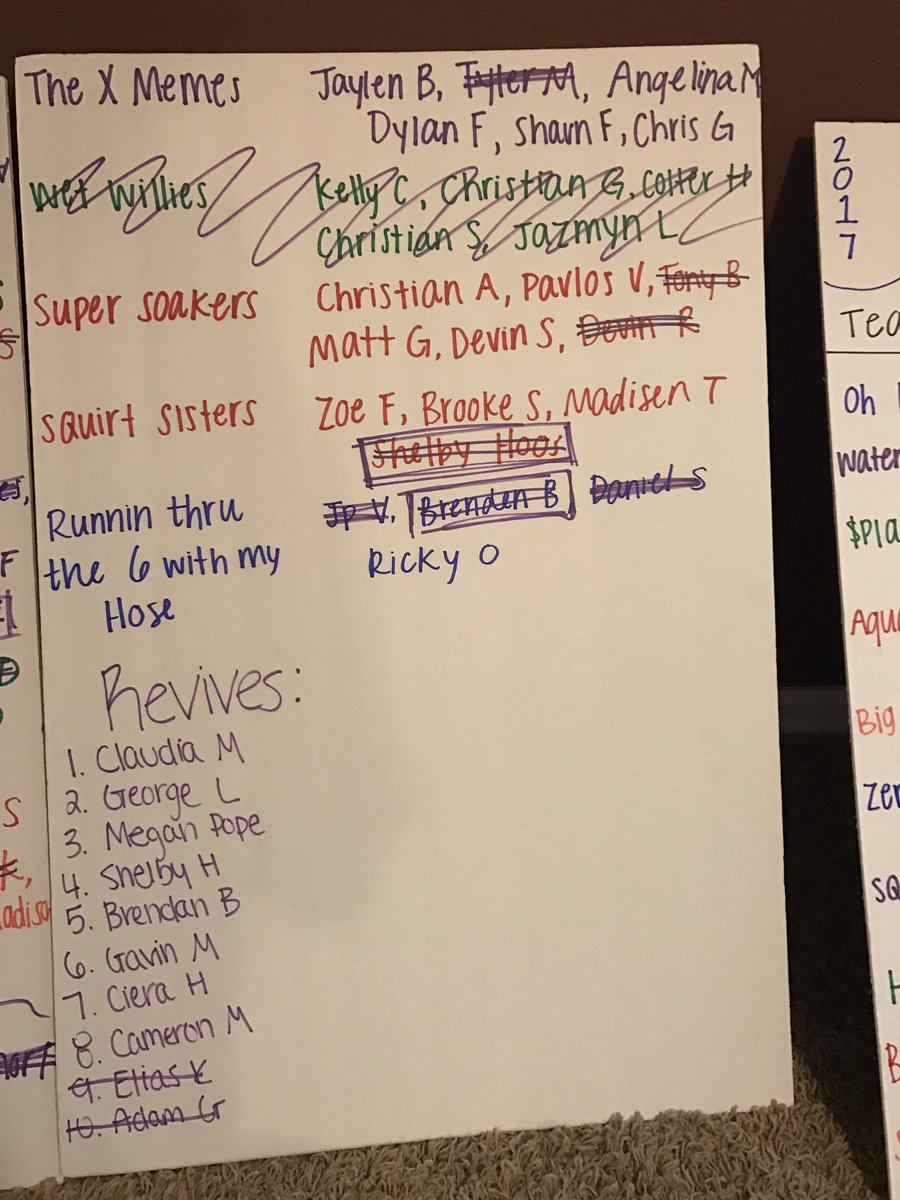 The X Memes Jaylen B, Tyler M, Angelina M
Dylan F, Shaun F, Chris G
Wet Willies Kelly C, Christian G, Colter H
Christian S, Jazmyn L
Super Soakers Christian A, Pavlos V, Tony B
Matt G, Devin S, Devin R
Squirt Sisters Zoe F, Brooke S, Madisen T
Shelby Hoos
Runnin thru JP V, Brenden B Daniel S
the 6 with my Ricky O
Hose
Revives:
1. Claudia M
2. George L
3. Megan Pope
4. Shelby H
5. Brendan B
6. Gavin M
7. Ciera H
8. Cameron M
9. Elias K
10. Adam G
2
0
1
7
Tea
Oh
water
$Pla
Aqua
Big
Zer
SQ
H
B